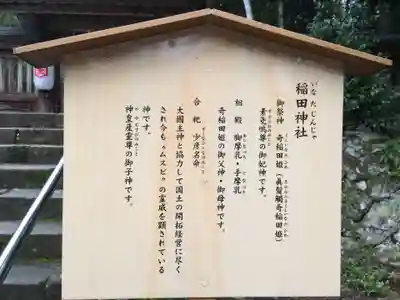 稲田神社
いなたじんじゃ
御祭神 奇稲田姫(真髪觸奇稲田姫)
素戔嗚尊の御妃神です。
相殿 脚摩乳・手摩乳
奇稲田姫の御父神・御母神です。
合祀 少彦名命
大國主神と協力して国土の開拓経営に尽く
され今も〝ムスビ〟の霊威を顕されている
神です。
神皇産霊尊の御子神です。